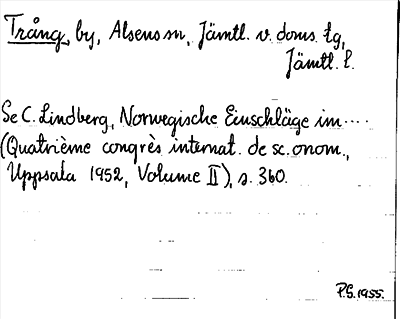 Trång, by, Alsens sn, Jämtl. v. doms. tg,
Jämtl. l.
Se C. Lindberg, Norwegische Einschläge im....
(Quatrième congrès internat. de sc. onom.,
Uppsala 1952, Volume II), s. 360.
P.S. 1955.